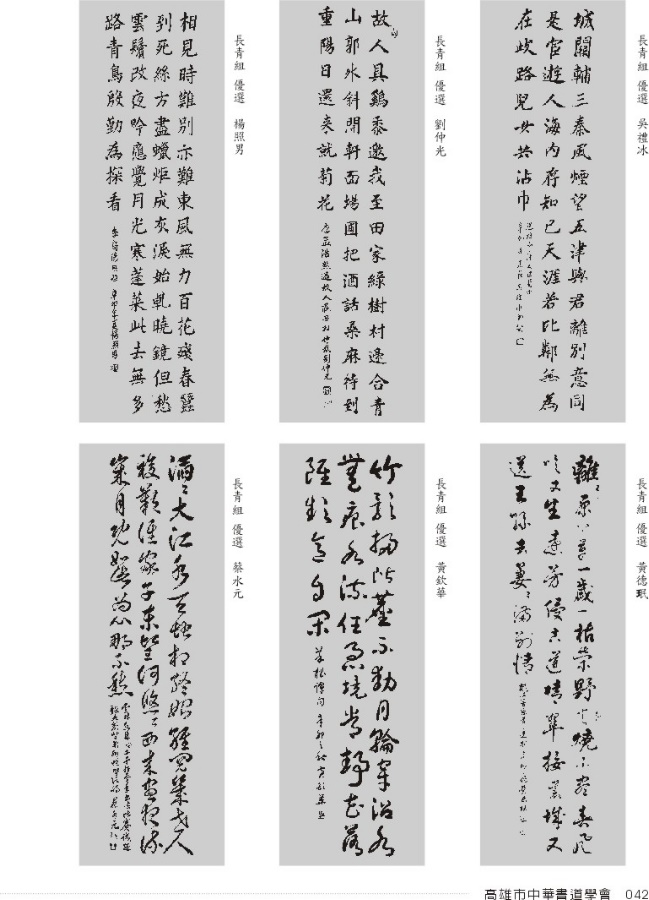 長青組 優選 吳禮冰
城闕輔三秦風煙望五津與君離別意同
是宦遊人海內存知己天涯若比鄰無為
在歧路兒女共沾巾
長青組 優選 劉仲光
故人具鷄黍邀我至田家綠樹村邊合青
山郭外斜開軒面場圃把酒話桑麻待到
重陽日還來就菊花
長青組 優選 楊照男
相見時難別亦難東風無力百花殘春蠶
到死絲方盡蠟炬成灰淚始乾曉鏡但愁
雲鬢改夜吟應覺月光寒蓬萊此去無多
路青鳥殷勤為探看
長青組 優選 黃德珉
離離原上草一歲一枯榮野火燒不盡春風
吹又生遠芳侵古道晴翠接荒城又
送王孫去萋萋滿別情
長青組 優選 黃欽華
竹影掃階塵不動月輪穿沼水
無痕水流任急境常靜花落
雖頻意自閑
長青組 優選 蔡水元
滔滔大江水天地相終始經閱幾世人
復歎誰家子東望何悠悠西來晝夜流
歲月既如此為心那不愁
高雄市中華書道學會 042